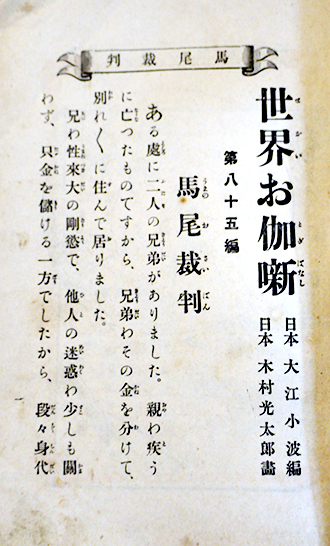 判裁尾馬
世界お伽噺
第八十五編
日本 大江小波編
日本 木村光太郎畫
馬尾裁判
ある處に二人の兄弟がありました。親わ疾う
に亡つたものですから、兄弟わその金を分けて、
別れ〳〵に住んで居りました。
兄わ性來大の剛慾で、他人の迷惑わ少しも關
わず、只金を儲ける一方でしたから、段々身代